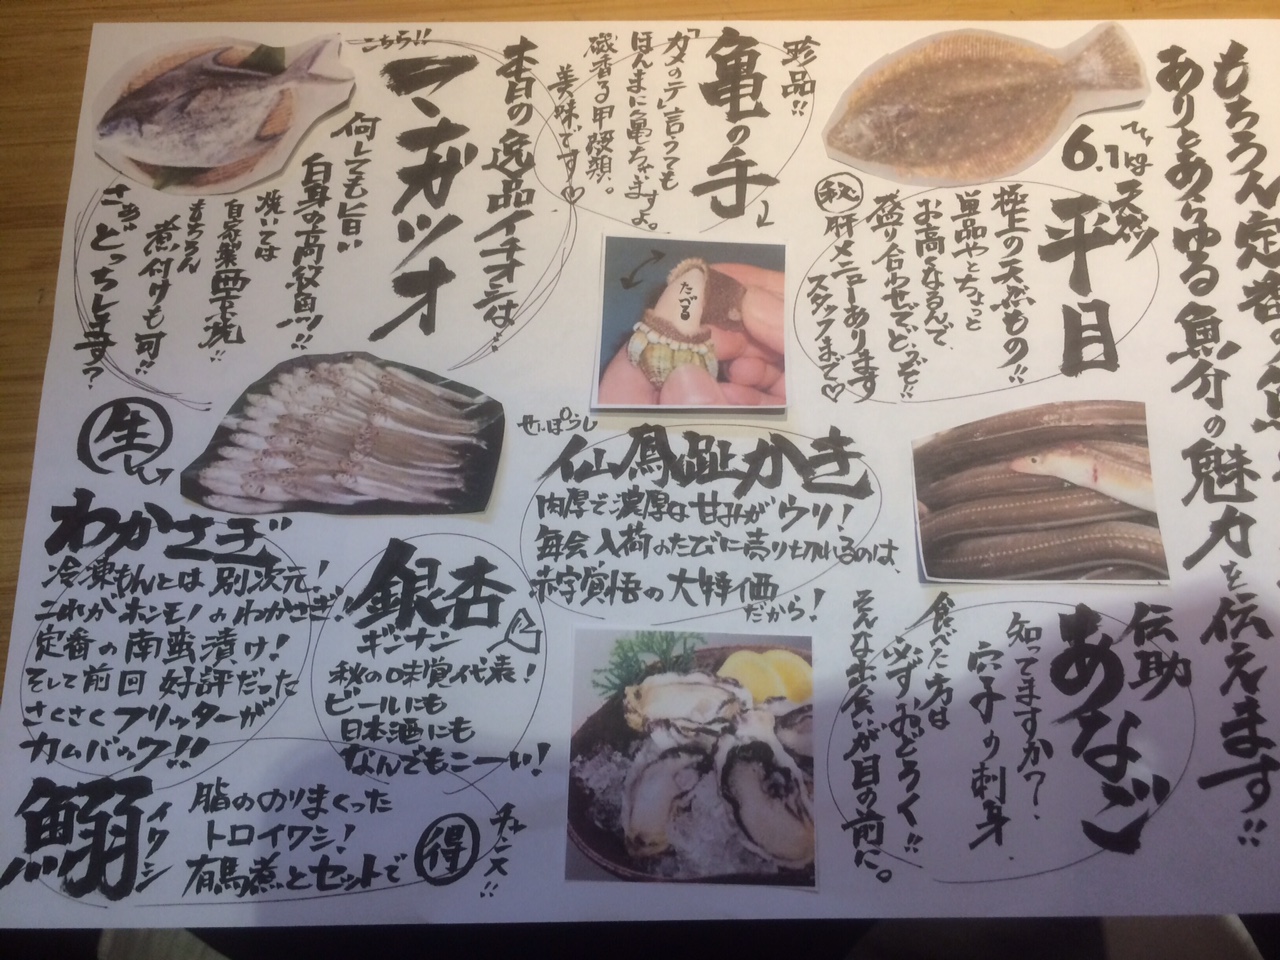 もちろん定番の
ありとあらゆる魚介の魅力を伝えます!!
6.1kg
天然
平目
極上の天然もの!!
単品やとちょっと
お高くなるんで
盛り合わせでどーぞ!!
秘 肝メニューあります
スタッフまで♡
伝助
あなご
知ってますか?
穴子の刺身
食べた方は
必ずおどろく!!
そんな出会いが目の前に。
珍品!!
亀の手」
「カメのテ」言うても
ほんまに亀ちゃいますよ。
磯香る甲殻類。
美味です♡
たべる
せんぽうし
仙鳳趾かき
肉厚で濃厚な甘みがウリ!
毎会入荷のたびに売り切れるのは、
赤字覚悟の大特価
だから!
本日の逸品イチオシは…
こちら!!
マナガツオ
何しても旨い
白身の高級魚!!
焼いては
自家製西京焼!!
もちろん
煮付けも可!!
さぁどっちします?
生
わかさぎ
冷凍もんとは別次元!
これがホンモノのわかさぎ!!
定番の南蛮漬け!
そして前回好評だった
さくさくフリッターが
カムバック!!
銀杏
ギンナン
秋の味覚代表!
ビールにも
日本酒にも
なんでもこーい!
鰯
イワシ
脂ののりまくった
トロイワシ!
有馬煮とセットで
得
チャンス!!